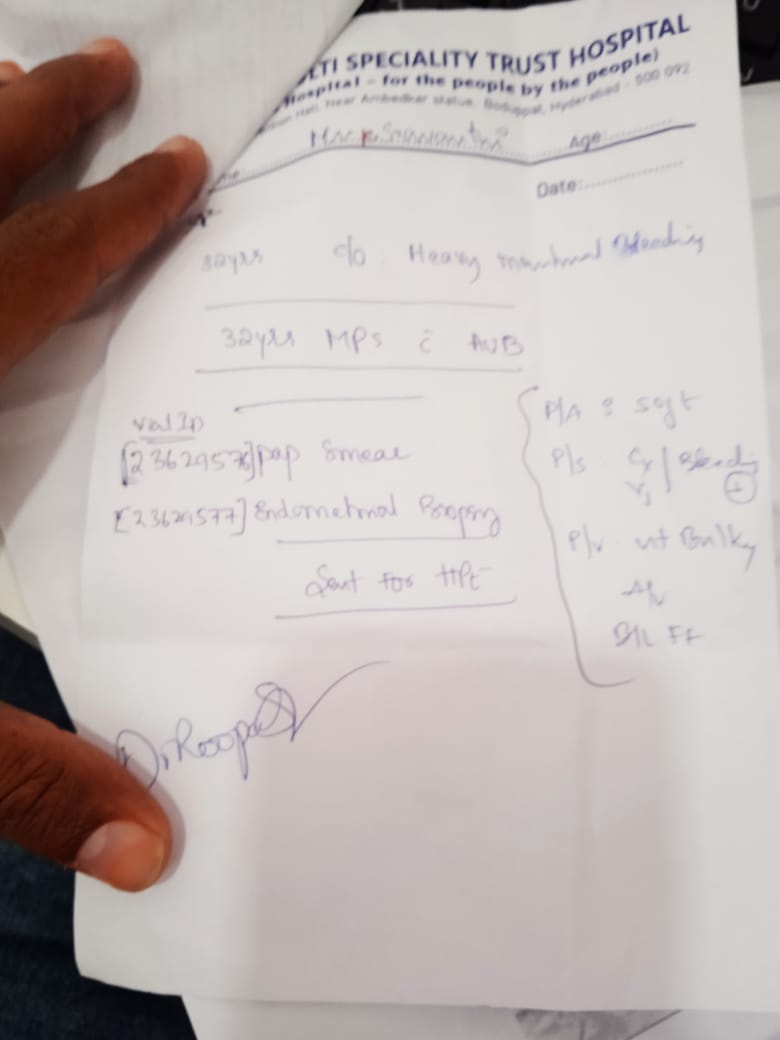 LTI SPECIALITY TRUST HOSPITAL
Hospital - for the people by the people)
Hall, Near Ambedkar statue, Boduppal, Hyderabad - 500 092
me: Age:
Date:
32yrs c/o. Heavy menstrual Bleeding
32yrs MPs c̄ AUB
Vial ID
[23629576] pap Smear
[23629577] Endometrial Biopsy
Sent for HPE
P/A : soft
P/s. Cx / Bleeding
⊕
P/v. ut Bulky
A/v
B/L FF
Dr Roopa